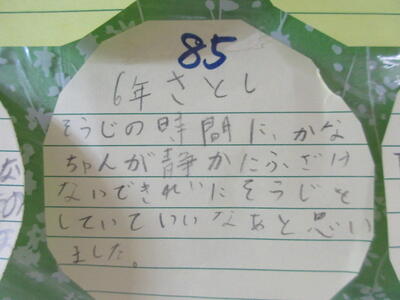 85
6年さとし
そうじの時間に、かな
ちゃんが静かにふざけ
ないできれいにそうじを
していていいなあと思い
ました。